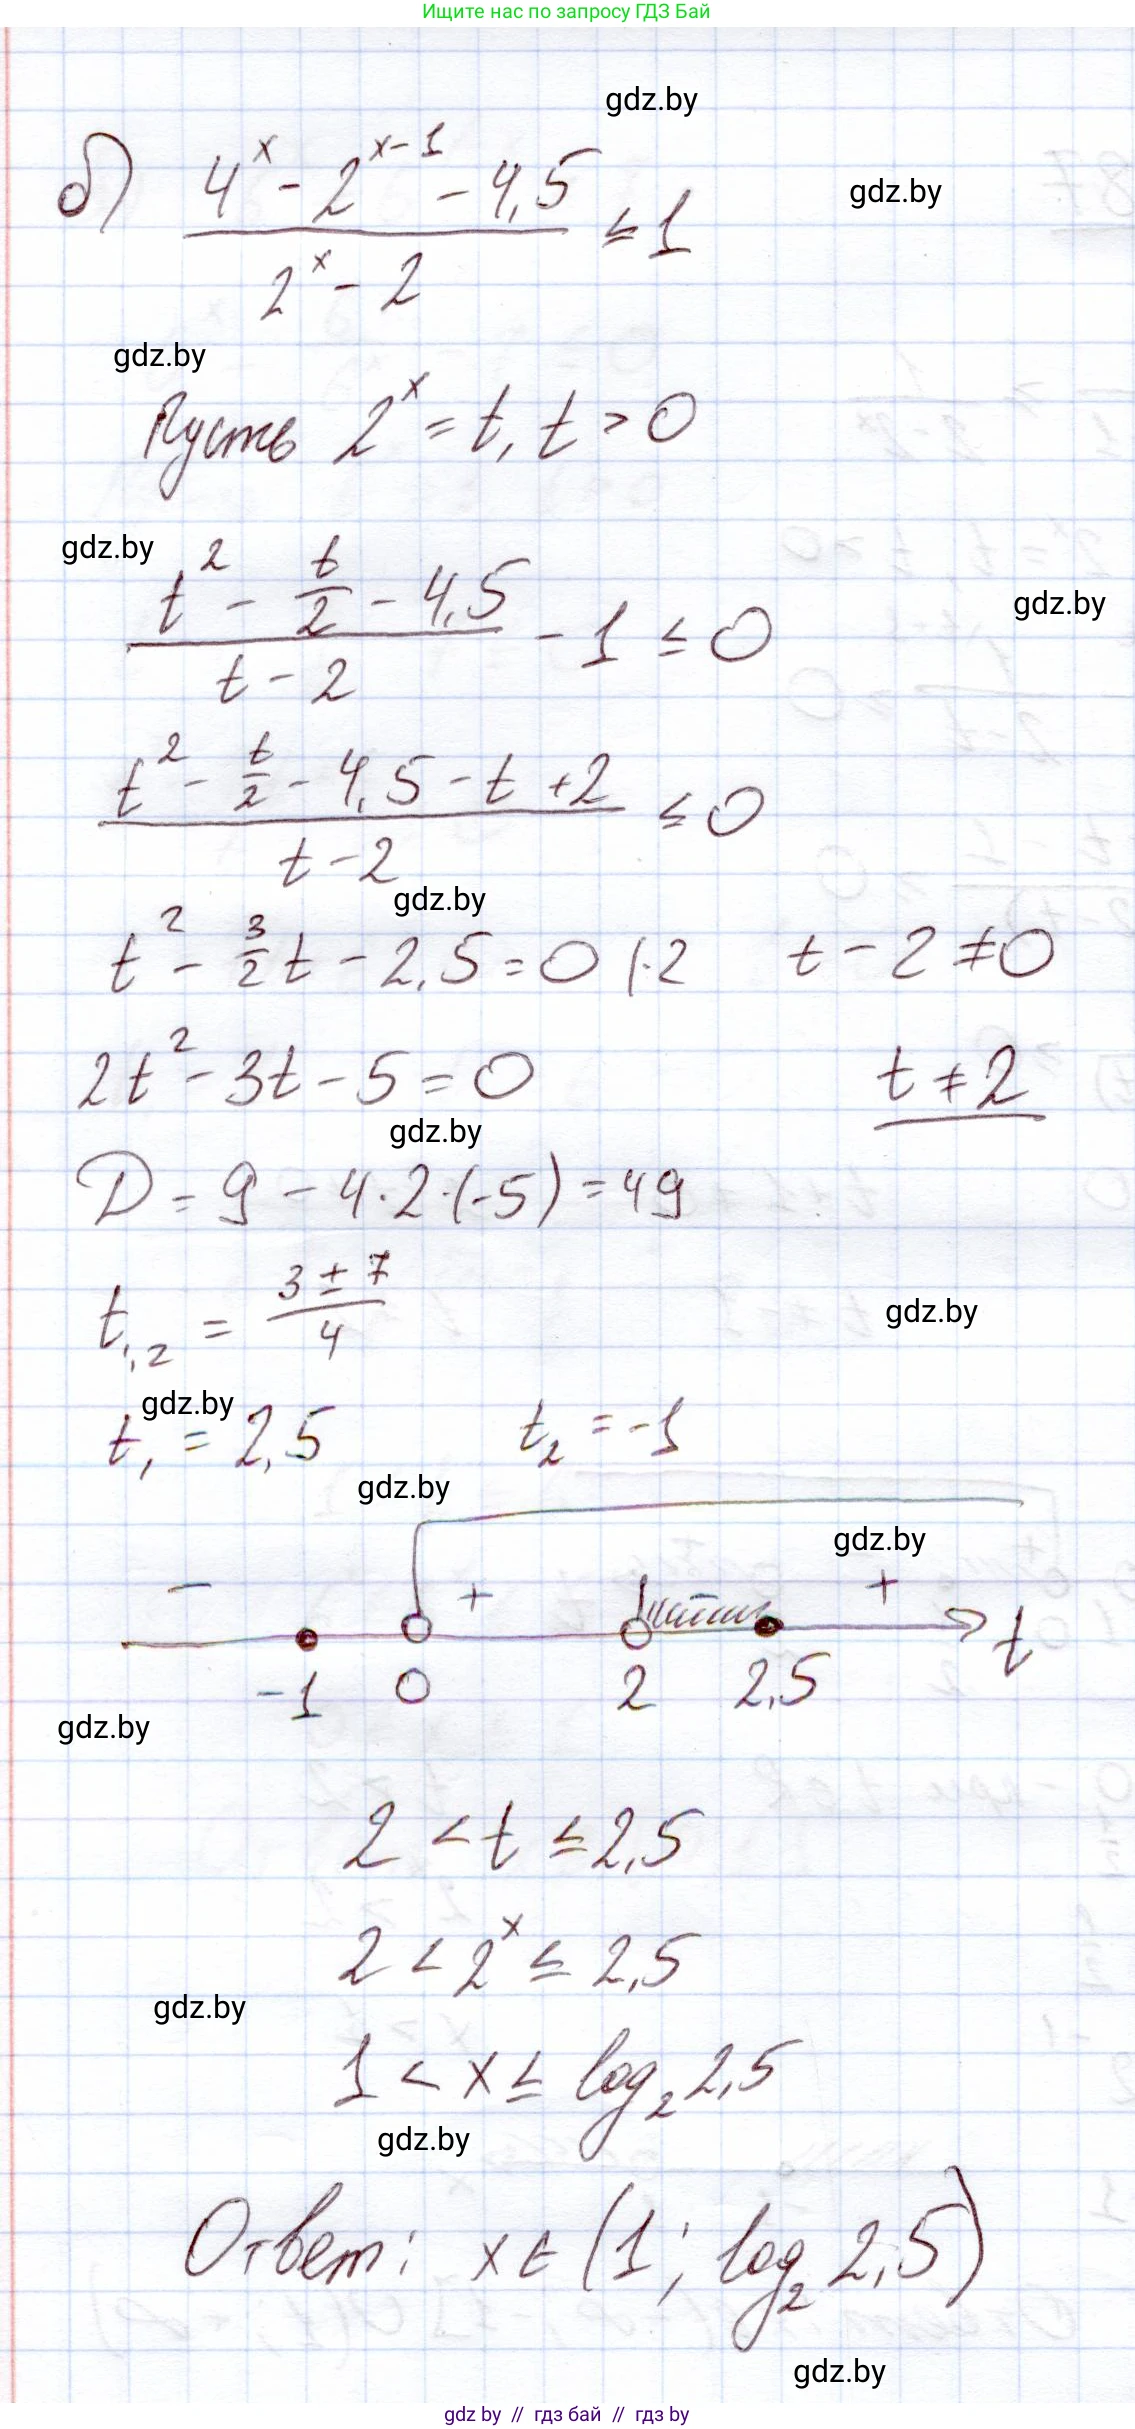 Ищите нас по запросу ГДЗ Бай
gdz.by
б) (4^x - 2^(x-1) - 4,5) / (2^x - 2) ≤ 1
gdz.by
gdz.by
Пусть 2^x = t, t > 0
gdz.by
(t^2 - t/2 - 4,5) / (t - 2) - 1 ≤ 0
gdz.by
(t^2 - t/2 - 4,5 - t + 2) / (t - 2) ≤ 0
gdz.by
t^2 - 3/2 t - 2,5 = 0 |·2 t - 2 ≠ 0
2t^2 - 3t - 5 = 0 t ≠ 2
gdz.by
D = 9 - 4·2·(-5) = 49
t_1,2 = (3 ± 7) / 4
gdz.by
gdz.by
t_1 = 2,5 t_2 = -1
gdz.by
gdz.by
- + - +
-1 0 2 2,5 t
gdz.by
2 < t ≤ 2,5
2 < 2^x ≤ 2,5
gdz.by
1 < x ≤ log_2 2,5
gdz.by
Ответ: x ∈ (1; log_2 2,5)
gdz.by
gdz by // гдз бай // гдз by